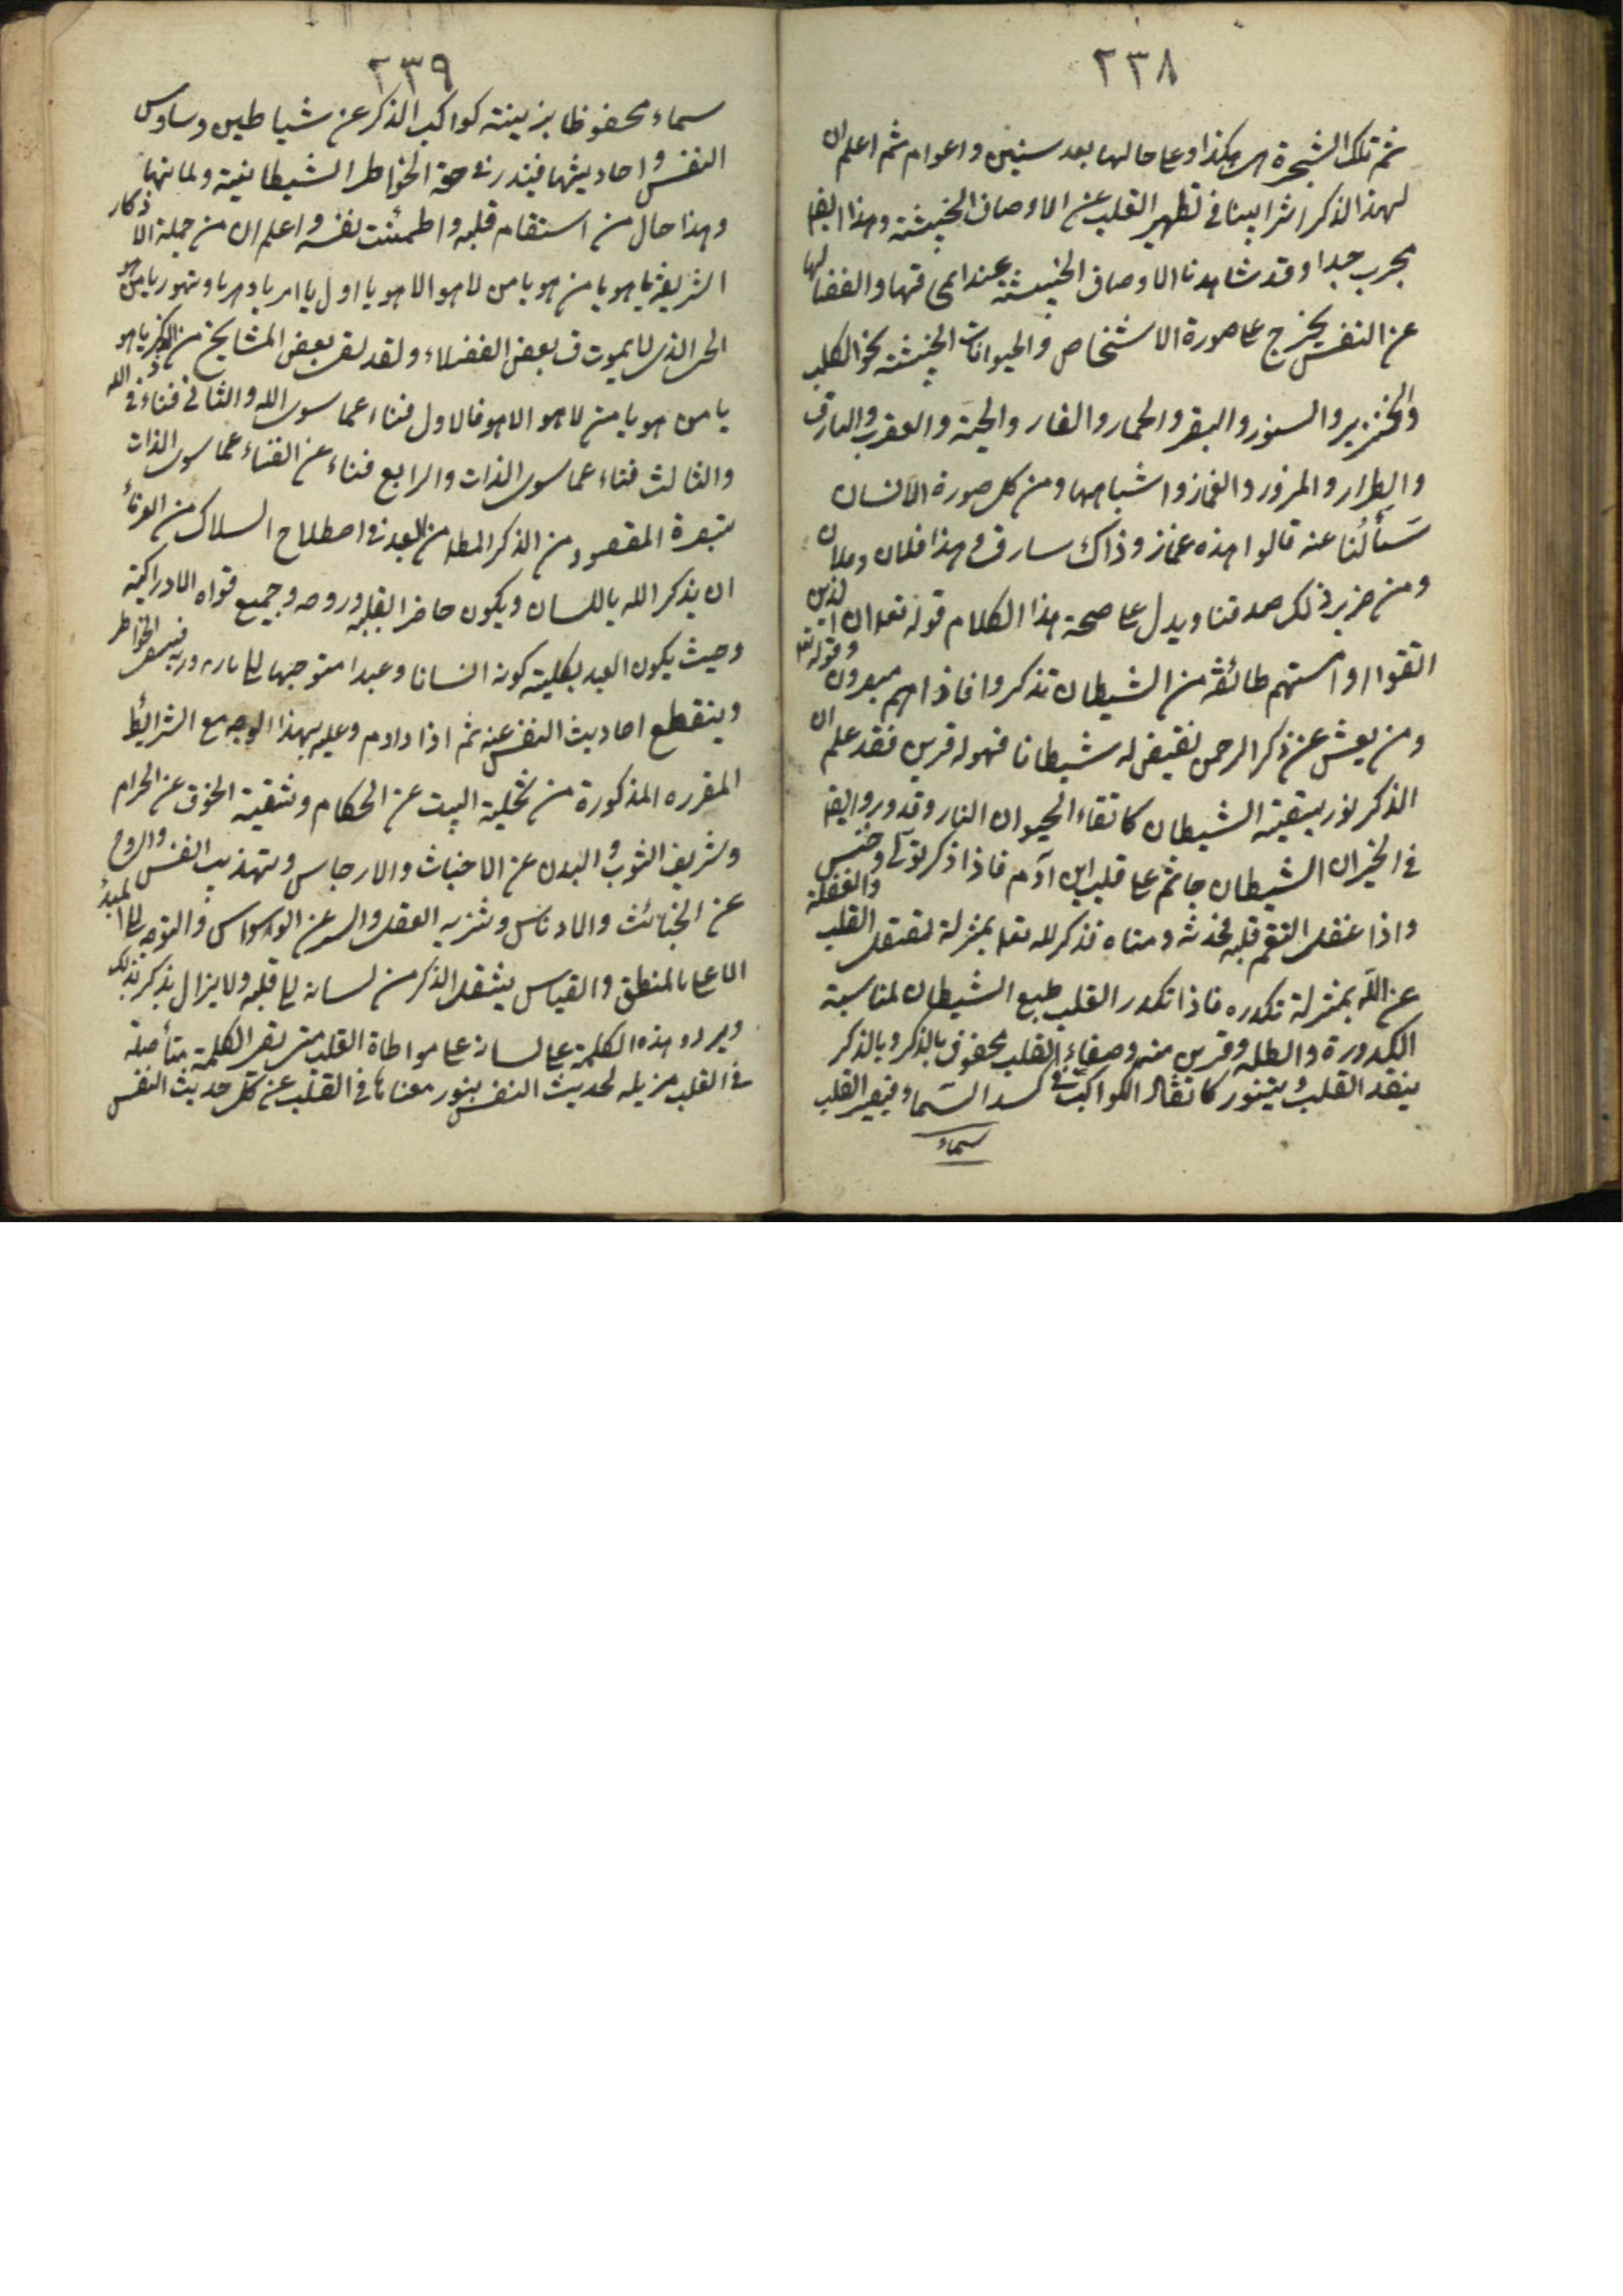 ٢٣٨
ثم تلك الشجرة هكذا وعا حالها بعد سنين واعوام ثم اعلم ان
لهذا الذكر اثرا بينا في تطهير القلب عن الاوصاف الخبيثة وهذا ايضا
مجرب جدا وقد شاهدنا الاوصاف الخبيثة عند امحاقها وانفصالها
عن النفس يخرج عا صورة الاشخاص والحيوانات الخبيثة نحو الكلب
والخنزير والسنور والبقر والحمار والفار والحية والعقرب والسارق
والطرار والمزور والغماز واشباهها ومن كل صورة الانسان
سَألْنا عنه قالوا هذه غماز وذاك سارق وهذا فلان وفلان
ومن ذلك صدقنا ويدل عا صحة هذا الكلام قوله تعا ان الذين
اتقوا اذا مستهم طائفة من الشيطان تذكروا فاذا هم مبصرون وقوله تعا
ومن يعش عن ذكر الرحمن نقيض له شيطانا فهو له قرين فقد علم ان
الذكر نور يتقيه الشيطان كاتقاء الحيوان النار وقد ورد ايضا
في الخبر ان الشيطان جاثم عا قلب ابن آدم فاذا ذكر تولى وخنس
واذا غفل التقم قلبه فحدثه ومناه فذكر الله تعا بمنزلة القلب والغفلة
عن الله بمنزلة تكدره فاذا تكدر القلب طبع الشيطان لمناسبة
الكدورة والظلمة وقرين منه وصفاء القلب محفوف بالذكر وبالذكر
يتقد القلب ويتنور كاتقاد الكواكب في كبد السماء فيصير القلب
سماء
٢٣٩
سماء محفوظا بزينة كواكب الذكر عن شياطين وساوس
النفس واحاديثها فيندر في حقه الخواطر الشيطانية ولماتها
وهذا حال من استقام قلبه واطمئنت نفسه واعلم ان من جملة الاذكار
الشريفة يا هو يا من هو يا من لا هو الا هو يا اول يا ابد يا دهر يا ديهور يا من هو
الحي الذي لا يموت ق بعض الفضلاء ولقد لقن بعض المشايخ من الذكر يا هو
يا من هو يا من لا هو الا هو فالاول فناء عما سوى الله والثاني فناء في الله
والثالث فناء عما سوى الذات والرابع فناء عن الفناء عما سوى الذات
تبصرة المقصود من الذكر المط من العبد في اصطلاح السلاك من العرفاء
ان يذكر الله باللسان ويكون حاضرا بقلبه وروحه وجميع قواه الادراكية
وحيث يكون العبد بكليته كونه انسانا وعبدا متوجها الى بارئه وربه فينتفى الخواطر
وينقطع احاديث النفس عنه ثم اذا داوم وعليه بهذا الوجه مع الشرائط
المقرره المذكورة من تخلية البيت عن الحكام وتنقية الجوف عن الحرام
وتشريف الثوب والبدن عن الاخباث والارجاس وتهذيب النفس والروح
عن الخبائث والادناس وتنزيه العقل والسر عن الوسواس والتوجه الى المبدأ
الاعا بالمنطق والقياس ينتقل الذكر من لسانه الى قلبه ولا يزال يذكر بذلك
ويردد هذه الكلمة عا لسانه عا مواطاة القلب حتى تصير الكلمة متأصلة
في القلب مزيله لحديث النفس ينور معناها في القلب عن كل حديث النفس